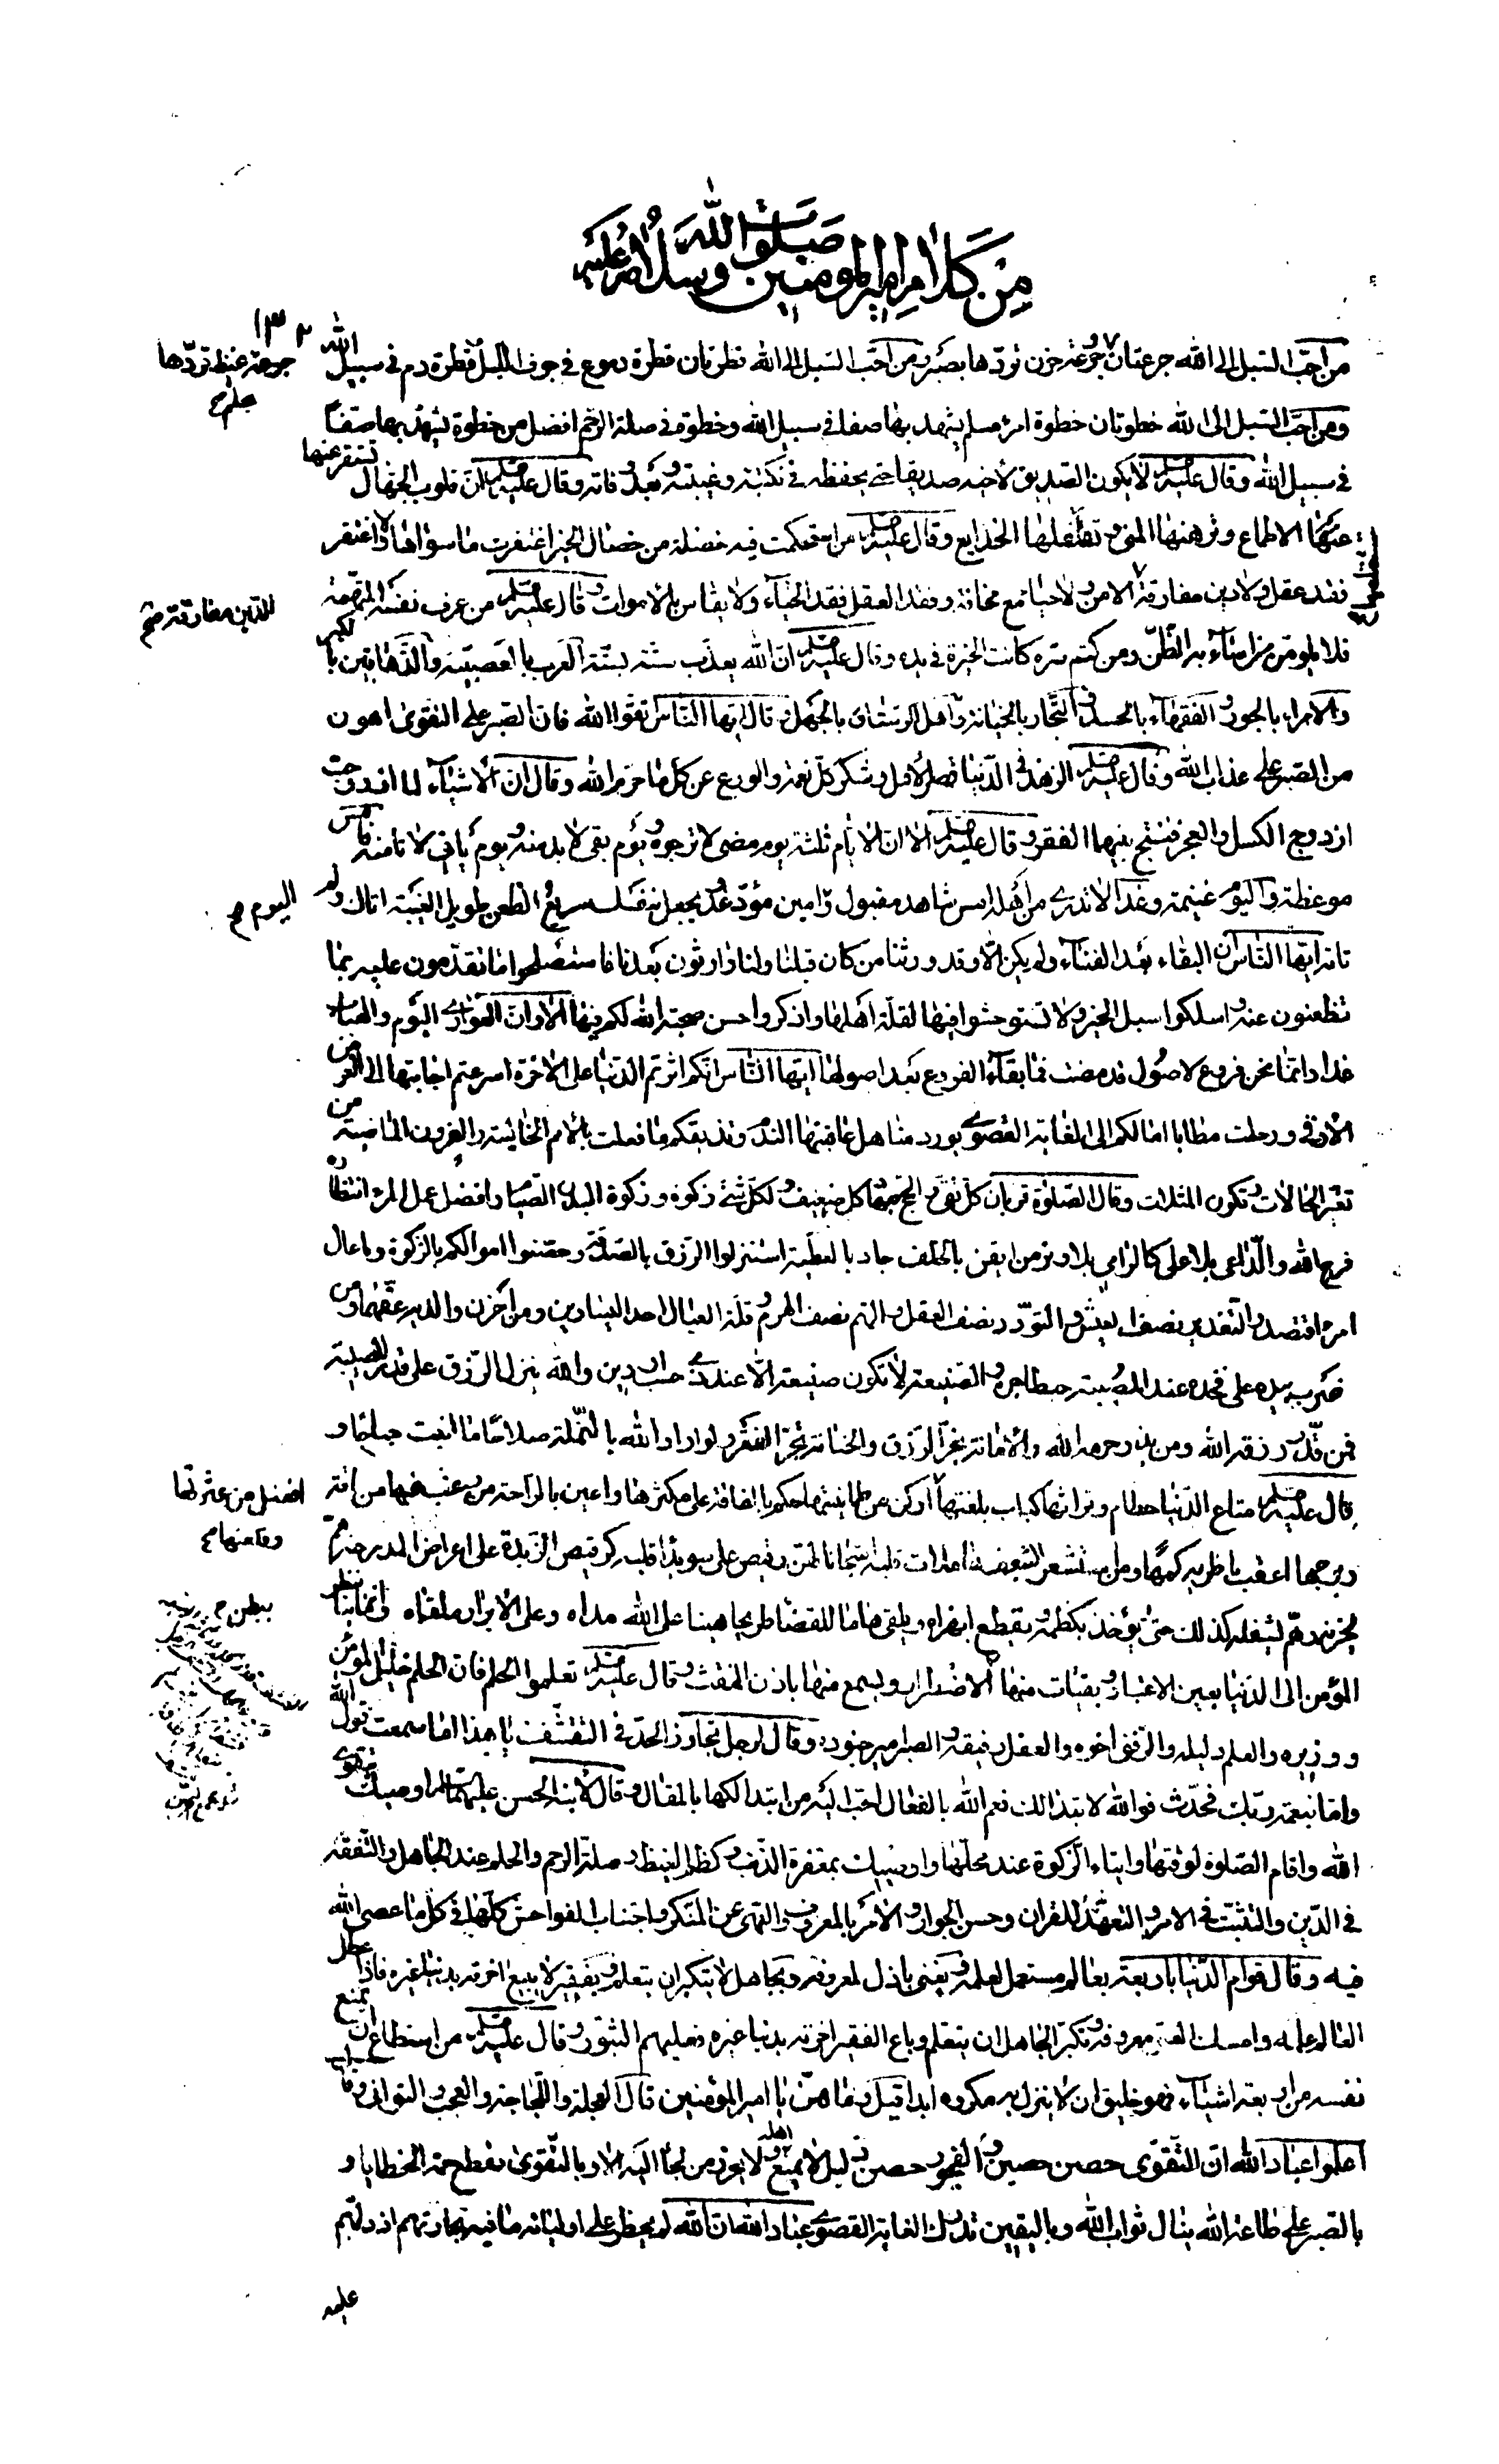 من كلام امير المومنين صلوات الله وسلامه عليه
١٣٢
من احب السبل الى الله جرعتان وجرعة حزن تردها بصبر ومن احب السبل الى الله قطرتان قطرة دموع في جوف الليل وقطرة دم في سبيل الله
جرعة غيظ تردها بحلم
ومن احب السبل الى الله خطوتان خطوة امرء مسلم يشهد بها صفا في سبيل الله وخطوة في صلة الرحم افضل من خطوة يشهد بها صفا
في سبيل الله وقال عليه لا يكون الصديق لاخيه صديقا حتى يحفظه في نكبته وغيبته وبعد وفاته وقال عليه ان قلوب الجهال تستفزعنها
الاطماع وترهنها المنى وتعلها الخدايع وقال عليه من استحكمت فيه خصلة من خصال الخير اغتفرت ما سواها ولا اغتفر
فقد عقل ولا دين مفارقة الامن ولا حياة مع مخافة وفقد العقل فقد الحياء ولا يقاس بالاموات وقال عليه من عرف نفسه للتهمة
الدين مفارقة
فلا يلومن من اساء به الظن ومن كتم سره كانت الخيرة في يده وقال عليه ان الله يعذب ستة بستة العرب بالعصبية والدهاقين بالكبر
والامراء بالجور والفقهاء بالحسد والتجار بالخيانة واهل الرستاق بالجهل وقال ايها الناس تقوا الله فان الصبر على التقوى اهون
من الصبر على عذاب الله وقال عليه الزهد في الدنيا قصر الامل وشكر كل نعمة والورع عن كل ما حرم الله وقال ان الاشياء لما ازدوجت
ازدوج الكسل والعجز فنتج بينهما الفقر وقال عليه الا ان الايام ثلثة يوم مضى لا ترجوه ويوم بقى لا بد منه ويوم ياتي لا تامنه فامس
موعظة واليوم غنيمة وغدا لا تدري من اهله امس شاهد مقبول وامين مؤد وغد يجعل نفسك سريع الظعن طويل الغيبة اتاك ولم
اليوم
تاته ايها الناس ان البقاء بعد الفناء ولم يكن الا وقد ورثنا من كان قبلنا ولنا وارثون بعدنا فاستصلحوا ما تقدمون عليه بما
تظعنون عنه واسلكوا سبل الخير ولا تستوحشوا فيها لقلة اهلها واذكروا حسن صحبة الله لكم فيها الا وان العواري اليوم والهبات
غدا وانما نحن فروع لاصول قد مضت فما بقاء الفروع بعد اصولها ايها الناس انكم اثرتم الدنيا على الاخرة اسرعتم اجابتها الى العرض
الادنى ورحلت مطايا امالكم الى الغاية القصوى بورد مناهل عاقبتها الندم وتذيقكم ما فعلت بالامم الخالية والقرون الماضية من
تغير الحالات وتكون المثلات وقال الصلوة قربان كل تقي والحج جهاد كل ضعيف ولكل شئ زكوة وزكوة البدن الصيام وافضل عمل المرء انتظاره
فرج الله والداعي بلا عمل كالرامي بلا وتر من ايقن بالخلف جاد بالعطية استنزلوا الرزق بالصدقة وحصنوا اموالكم بالزكوة وما عال
امرء اقتصد والتقدير نصف العيش والتودد نصف العقل والهم نصف الهرم وقلة العيال احد اليسارين ومن احزن والديه عقهما ومن
ضرب بيده على فخذه عند المصيبة حبط اجره والصنيعة لا تكون صنيعة الا عند ذي حسب او دين والله ينزل الرزق على قدر المصيبة
فمن قدر رزقه الله ومن بذر حرمه الله والامانة تجر الرزق والخيانة تجر الفقر ولو اراد الله بالنملة صلاحا ما انبت جناحا و
قال عليه متاع الدنيا حطام وتراثها كباب بلغتها اركن من طمانينتها حكم بالفاقة على مكثرها واعين بالراحة من رغب عنها من راقه
افضل من عثرتها
زبرجها اعقب ناظريه كمها ومن استشعر الشعف بها ملات قلبه اشجانا لهن رقيص على سويداء قلبه كرقيص الزبدة على اعراض المدرجة هم
يحزنه وهم يشغله كذلك حتى يؤخذ بكظمه ويقطع ابهراه ويلقى هاما للقضا طريحا هينا على الله مداه وعلى الابرار ملقاه وانما ينظر
المؤمن الى الدنيا بعين الاعتبار ويقتات منها الاضطرار ويسمع منها باذن المقت وقال عليه تعلموا الحلم فان الحلم خليل المؤمن
ووزيره والعلم دليله والرفق اخوه والعقل رفيقه والصبر امير جنوده وقال لرجل تجاوز الحد في التقشف يا هذا اما سمعت قول الله
واما بنعمة ربك فحدث فوالله لابتذالك نعم الله بالفعال احب اليه من ابتذالكها بالمقال وقال لابنه الحسن عليهما اوصيك بتقوى
الله واقام الصلوة لوقتها وايتاء الزكوة عند محلها واوصيك بمغفرة الذنب وكظم الغيظ وصلة الرحم والحلم عند الجاهل والتفقه
في الدين والتثبت في الامر والتعهد للقران وحسن الجوار والامر بالمعروف والنهي عن المنكر واجتناب الفواحش كلها في كل ما عصى الله
فيه وقال قوام الدنيا باربعة بعالم مستعمل لعلمه وبغني باذل لمعروفه وبجاهل لا يتكبر ان يتعلم وبفقير لا يبيع اخرته بدنيا غيره فاذا عطل
العالم علمه وامسك الغني معروفه وتكبر الجاهل ان يتعلم وباع الفقير اخرته بدنيا غيره فعليهم الثبور وقال عليه من استطاع ان يمنع
نفسه من اربعة اشياء فهو خليق ان لا ينزل به مكروه ابدا قيل وما هن يا امير المؤمنين قال العجلة واللجاجة والعجب والتواني وقال
اعلموا عباد الله ان التقوى حصن حصين والفجور حصن ذليل لا يمنع اهله ولا يحرز من لجأ اليه الا وبالتقوى تقطع حمة الخطايا و
بالصبر على طاعة الله ينال ثواب الله وباليقين تدرك الغاية القصوى عباد الله ان الله لم يحظر على اوليائه ما فيه نجاتهم اذ دلهم
عليه